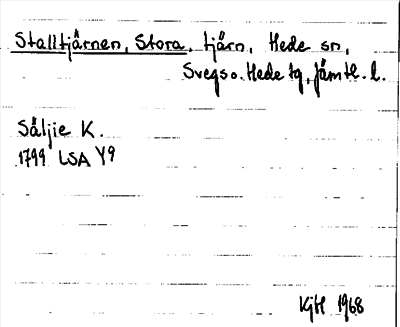 Stalltjärnen, Stora, tjärn, Hede sn,
Svegs o. Hede tg, Jämtl. l.
Säljie K.
1799 LSA Y9
KgH 1968